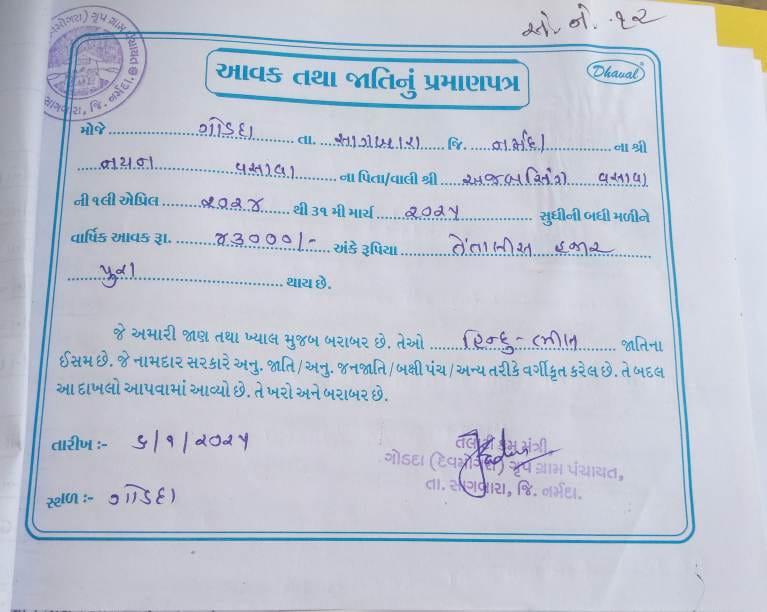 ઓ. નં. ૧૨
ગૃપ ગ્રામ પંચાયત
સાગબારા, જિ. નર્મદા.
આવક તથા જાતિનું પ્રમાણપત્ર
Dhaval
મોજે ગોડદા તા. સાગબારા જિ. નર્મદા ના શ્રી
નયન વસાવા ના પિતા/વાલી શ્રી અજબસિંગ વસાવા
ની ૧લી એપ્રિલ ૨૦૨૪ થી ૩૧ મી માર્ચ ૨૦૨૫ સુધીની બધી મળીને
વાર્ષિક આવક રૂા. ૪૩૦૦૦/- અંકે રૂપિયા તેંતાલીસ હજાર
પુરા થાય છે.
જે અમારી જાણ તથા ખ્યાલ મુજબ બરાબર છે. તેઓ હિન્દુ-ભીલ જાતિના
ઈસમ છે. જે નામદાર સરકારે અનુ. જાતિ / અનુ. જનજાતિ / બક્ષી પંચ / અન્ય તરીકે વર્ગીકૃત કરેલ છે. તે બદલ
આ દાખલો આપવામાં આવ્યો છે. તે ખરો અને બરાબર છે.
તારીખ :- ૬/૧/૨૦૨૫
તલાટી કમ મંત્રી,
ગોડદા (દેવમોગરા) ગૃપ ગ્રામ પંચાયત,
તા. સાગબારા, જિ. નર્મદા.
સ્થળ :- ગોડદા